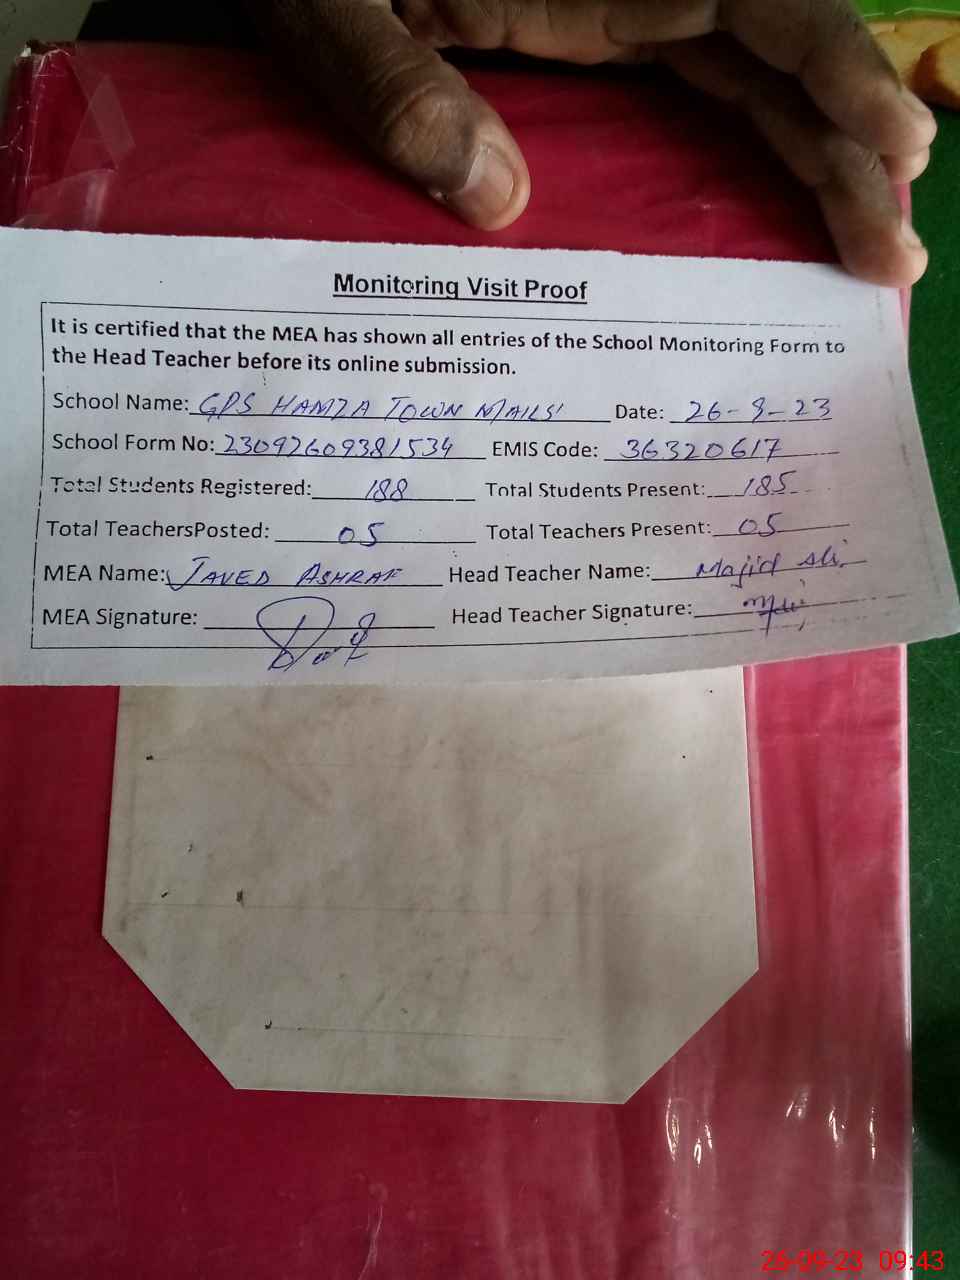 Monitoring Visit Proof
It is certified that the MEA has shown all entries of the School Monitoring Form to
the Head Teacher before its online submission.
School Name: GPS HAMZA TOWN MAILSI Date: 26-9-23
School Form No: 23092609381534 EMIS Code: 36320617
Total Students Registered: 188 Total Students Present: 185
Total TeachersPosted: 05 Total Teachers Present: 05
MEA Name: JAVED ASHRAF Head Teacher Name: Majid Ali
MEA Signature: Head Teacher Signature:
26-09-23 09:43